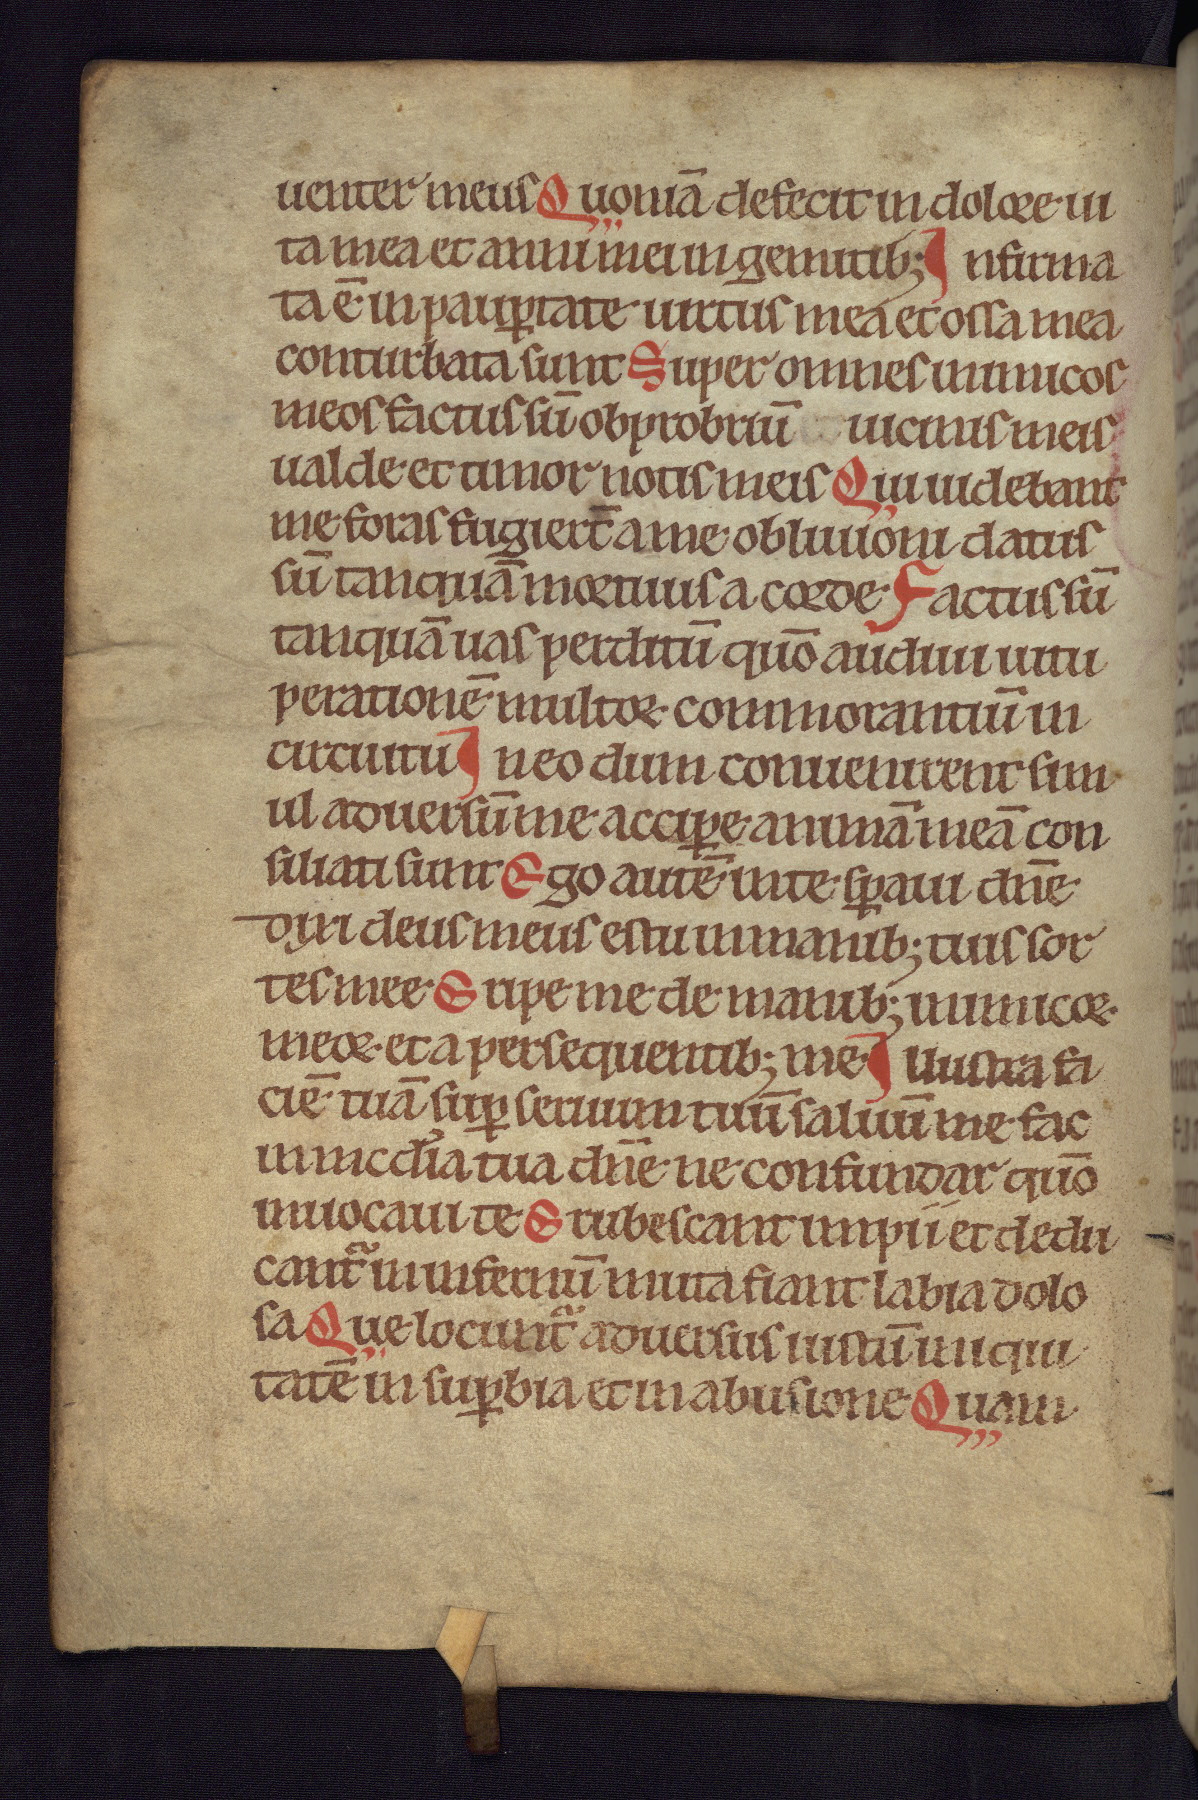 uenter meus Quoniā defecit in dolore ui
ta mea et anni mei in gemitib; Infirma
ta ē in paup̄tate uirtus mea et ossa mea
conturbata sunt Super omnes inimicos
meos factus sū obprobriū uicinis meis
ualde et timor notis meis Qui uidebant
me foras fugiert̄ a me obliuioni datus
sū tanquā mortuus a corde Factus sū
tanquā uas perditū quō audiui uitu
perationē multoꝝ commorantiū in
circuitu In eo dum conuenirent sim
ul aduersū me accip̄e animā meā con
siliati sunt Ego autē in te sp̄aui dn̄e
dixi deus meus es tu in manib; tuis sor
tes mee Eripe me de manib; inimicoꝝ
meoꝝ et a persequentib; me Illustra fa
ciē tuā sup̄ seruum tuū saluū me fac
in mcd̄ia tua dn̄e ne confundar quō
inuocaui te Erubescant impíí et dedu
cant᷑ in infernū muta fiant labia dolo
sa Que locunt᷑ aduersus iustū iniqui
tatē in sup̄bia et in abusione Quam